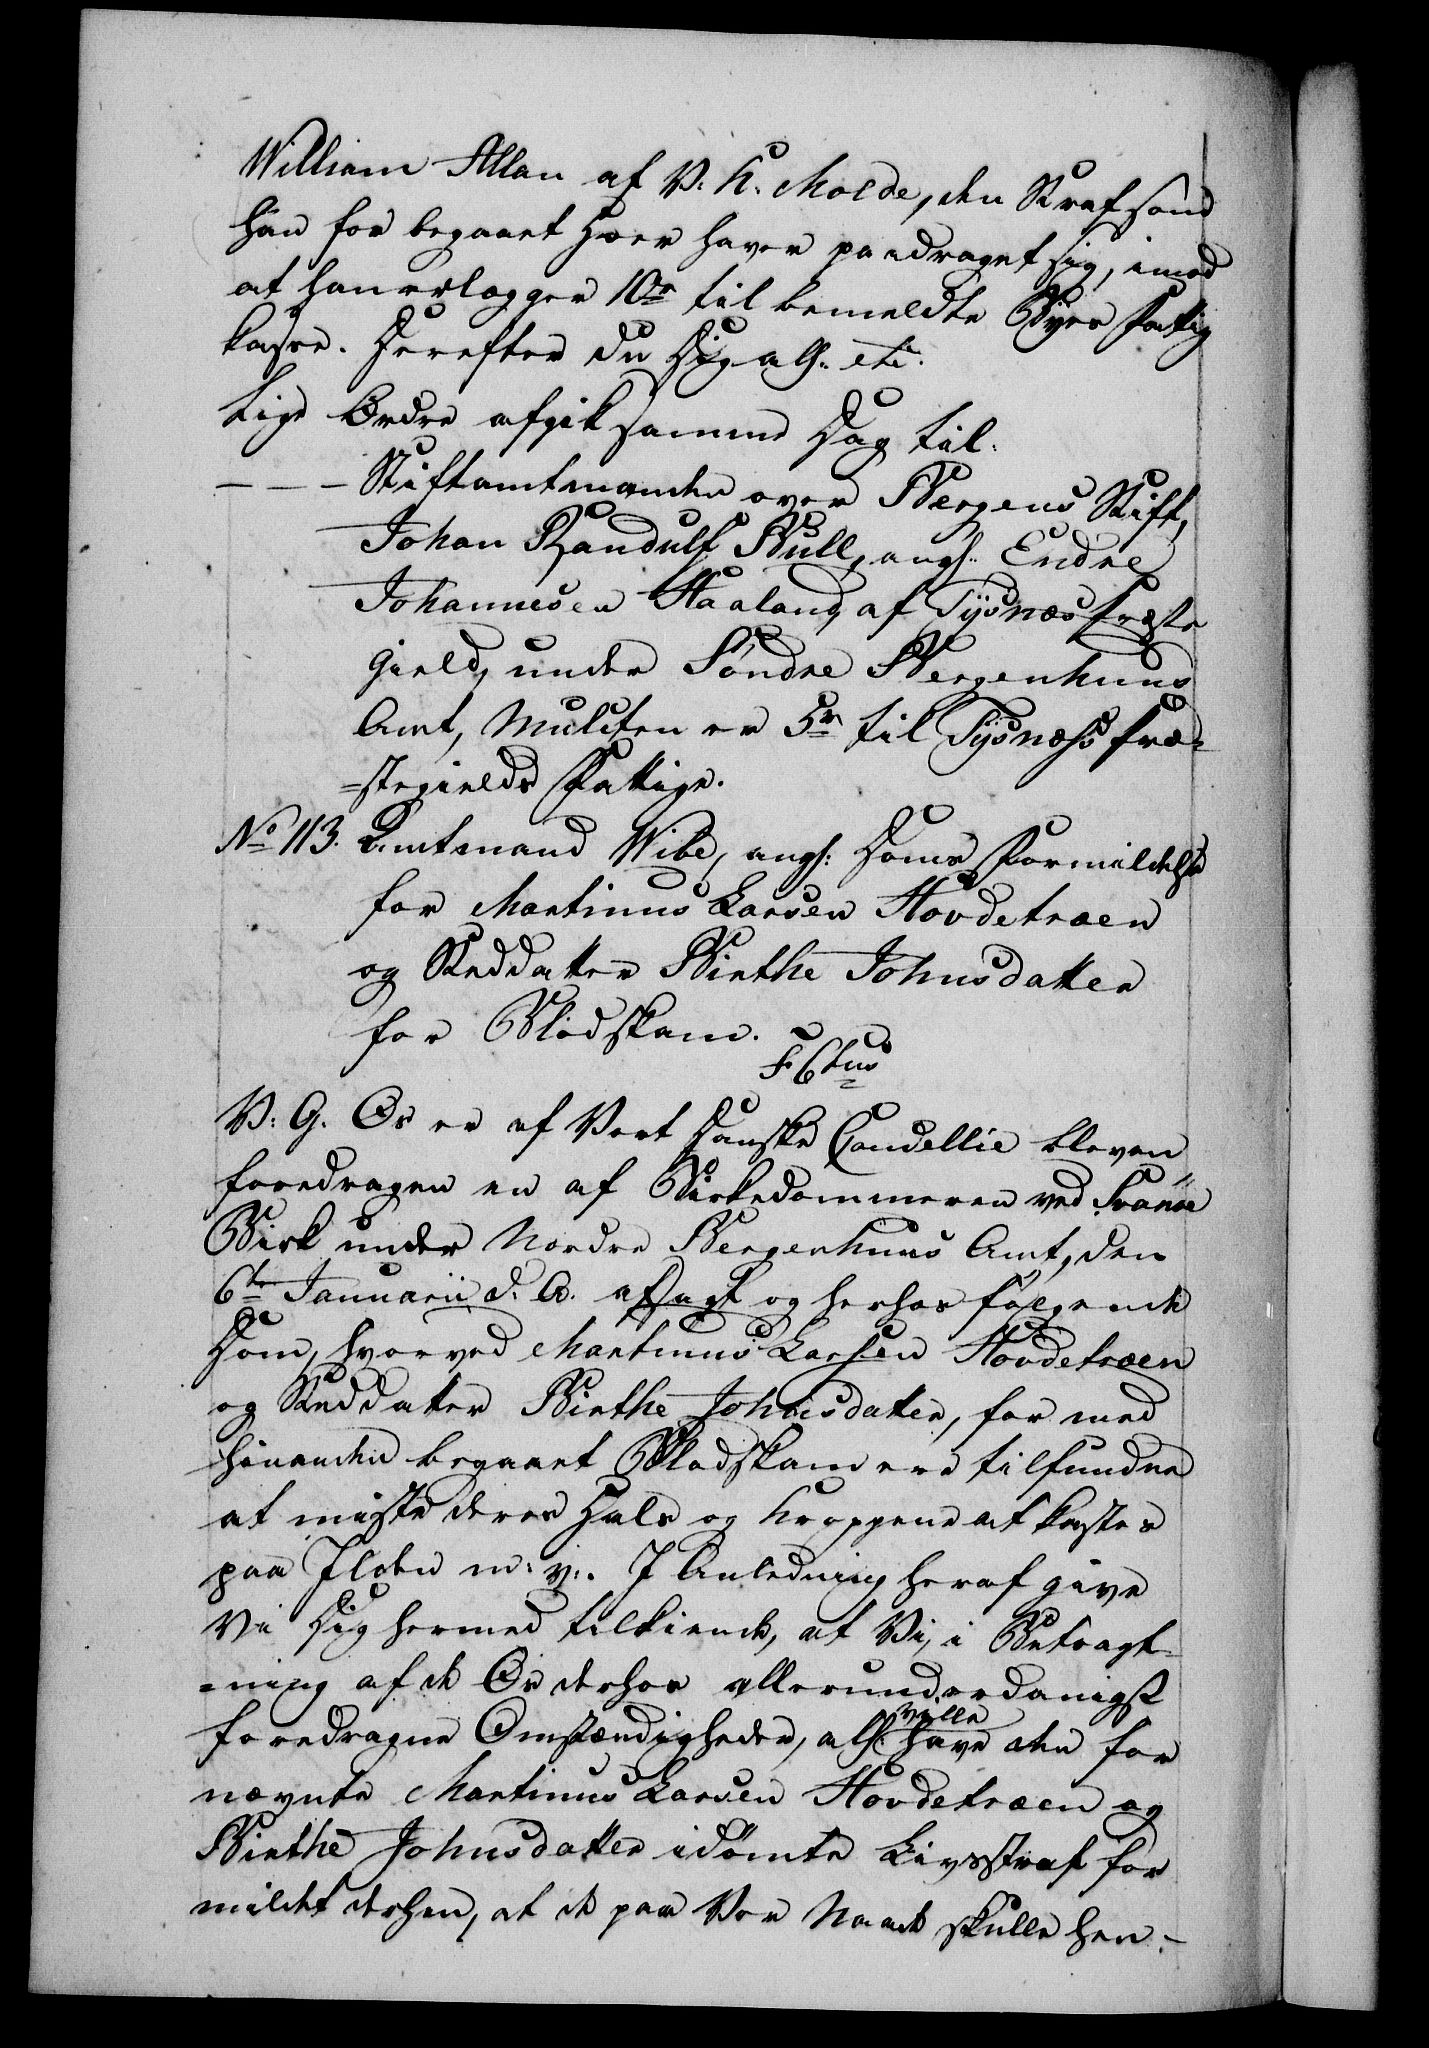 William Allan af V: K: Molde, den Straf som
han for begaaet Hoer haver paadraget sig, imod
at han erlægger 10r til bemeldte Byes Fattig
kasse. Herefter du Dig alh. etc.
Lige Ordre afgik samme Dag til:
– – – Stiftamtmanden over Bergens Stift,
Johan Randulf Bull, angl. Endre
Johannesen Haaland af Tysnæs Præste
Gield, under Søndre Bergenhuus
Amt, Mulcten er 5r til Tysnæss Præ-
=stegields Fattige.
No 113. Amtmand Wibe, angl: Doms Formildelse
for Martinus Larsen Hovdetræen
og Steddatter Birthe Johnsdatter
for Blodskam.
F. 6tus
V: G. Os er af Vort Danske Cancellie bleven
foredragen en af Birkedommeren ved Svanøe
Birk under Nordre Bergenhuus Amt, den
6te Januarii d: A. afsagt og herhos følgende
Dom, hvorved Martinus Larsen Hovdetræen
og Steddatter Birthe Johnsdatter, for med
hinanden begaaet Blodskam ere tilfundne
at miste deres Hals og Kroppene at kastes
paa Ilden m: v:. I Anledning heraf give
Vi Dig hermed tilkiende, at Vi, i Betragt-
=ning af de Os derhos allerunderdanigst
foredragne Omstændigheder, alh: ville have den for
nævnte Martinus Larsen Hovdetræen og
Birthe Johnsdatter idømte Livsstraf for
mildet derhen, at de paa Vor Naade skulle hen-